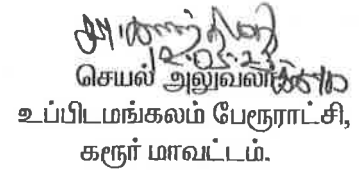 செயல் அலுவலர்
உப்பிடமங்கலம் பேரூராட்சி,
கரூர் மாவட்டம்.